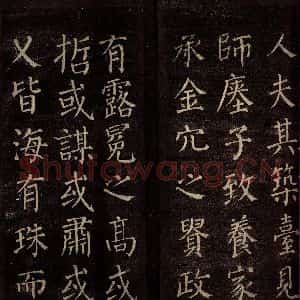 人夫其築臺見
師塵子致養家
承金穴之賢政
有露冕之高或
哲或謀或肅或
乂皆海有珠而
Shufawang.CN